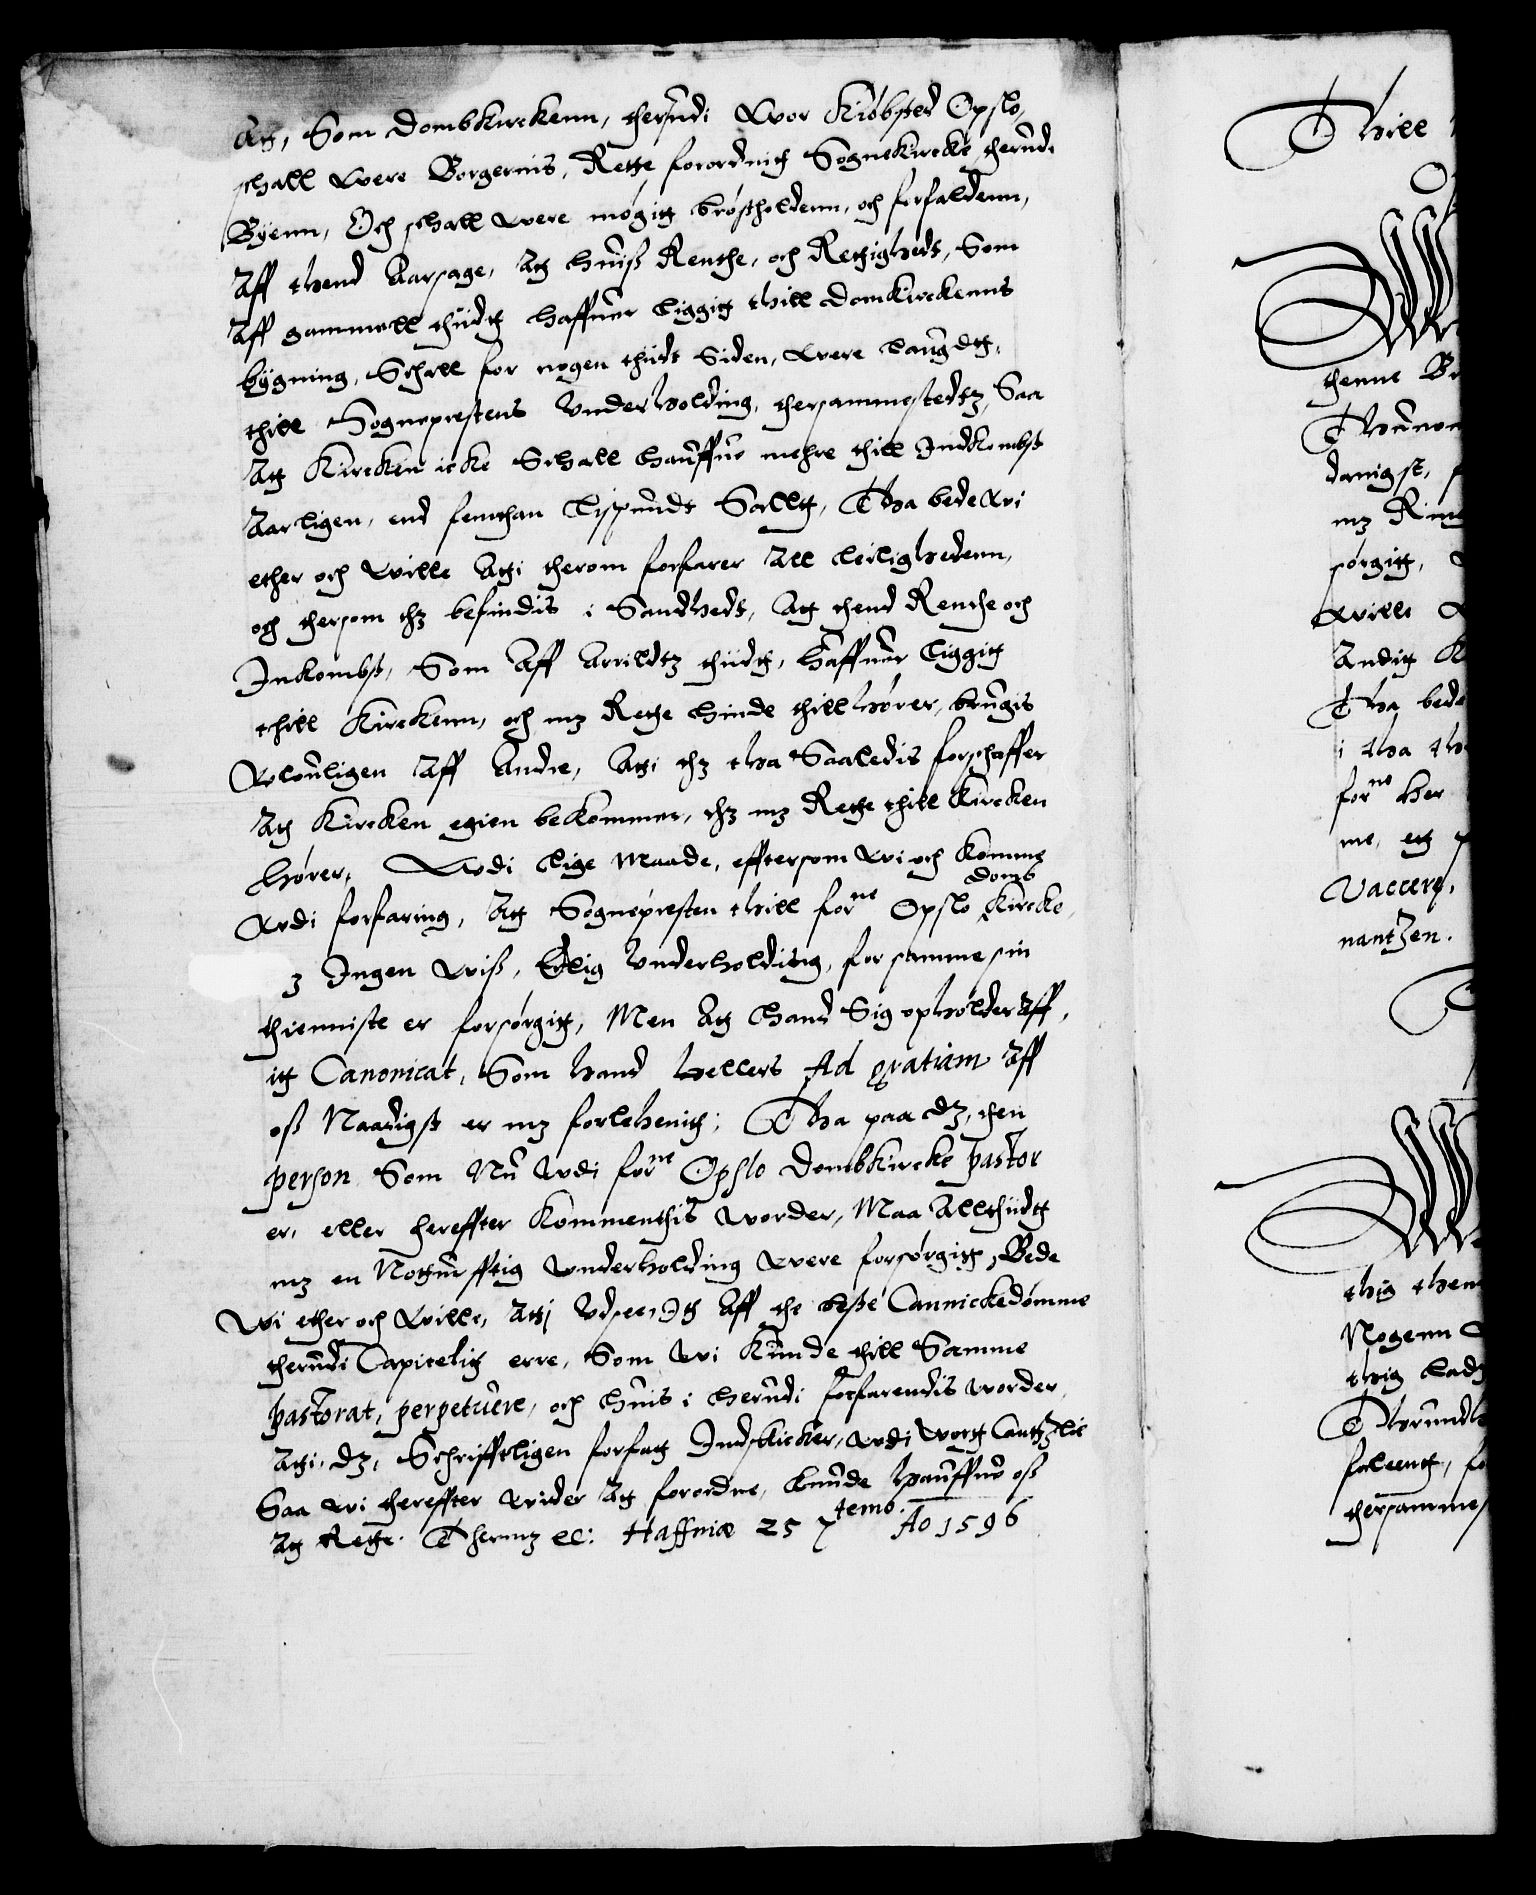 Att, Som Dombkirckenn, therudi Wor Kiøbsted Opslo,
schall were Borgernis, Rette forordnith Sognekircke therudi
Byenn, Och schall were møgitt brøstholdenn, och forfaldenn,
Aff thend Aarsage, At huis Renthe, och Rettigheds, Som
Aff gammell thiidt haffuer liggitt thill Domkirckenns
bygning, Schall for nogen thiidt Siden, were laugdtt,
thill Sogneprestens Underholding, thersammestedtz, Saa
At Kircken icke Schall hauffue mehre thill Indkombst
Aarligen, end femthan Lispundt Salltt, Tha bede wi
ether och wille Atti therom forfarer All leilighedenn,
och thersom thz befindis i Sandheds, At thend Renthe och
Inkombst, Som Aff Arrildtz thiidt, haffuer liggitt
thill Kirckenn, och mz Rette hinde thillhører, brugis
Wlouligen Aff Andre, Atti thz tha Saaledis forschaffer
At Kircken egien bekommer, thz mz Rette thill Kircken
hører, Wdi lige Maade, efftersom wi och komme
doms
Wdi forfaring, At Sognepresten thill forne Opslo Kircke,
z Ingen wiss, Erlig Underholding, for samme sin
thienniste er forsørgitt, Men At hand Sig opholder Aff,
itt Canonicat, Som hand hellers Ad gratiam Aff
oss Naadigst er mz forlehenit; Tha paa dz, then
person Som Nu wdi forne Opslo Dombkircke pastor
er, eller hereffter kommenthis worder, Maa Allthiidt
mz en Nottürfftig underholding were forsørgitt, Bede
Wi ether och wille, Attj Udseer, Itt Aff the beste Cannickedømme
therudi Capitelit erre, Som wi kunde thill Samme
pastorat, perpetuere, och huis i herudi forfarendis worder,
Atti, dz, Schrifftligen forfatt Indskicker, wdi wortt Cantzelie
Saa wi thereffter wider At forordne, kunde hauffue oss
At Rette. Thermz ec: Haffniæ 25 7temb. Ao 1596

Thill
thenne
danigst,
mz
sørgitt,
wille
Andit
Tha bede
i tha
forne Her
me, ett
Vaccere,
nantzen.
thig
Nogenn
thig
thersammes